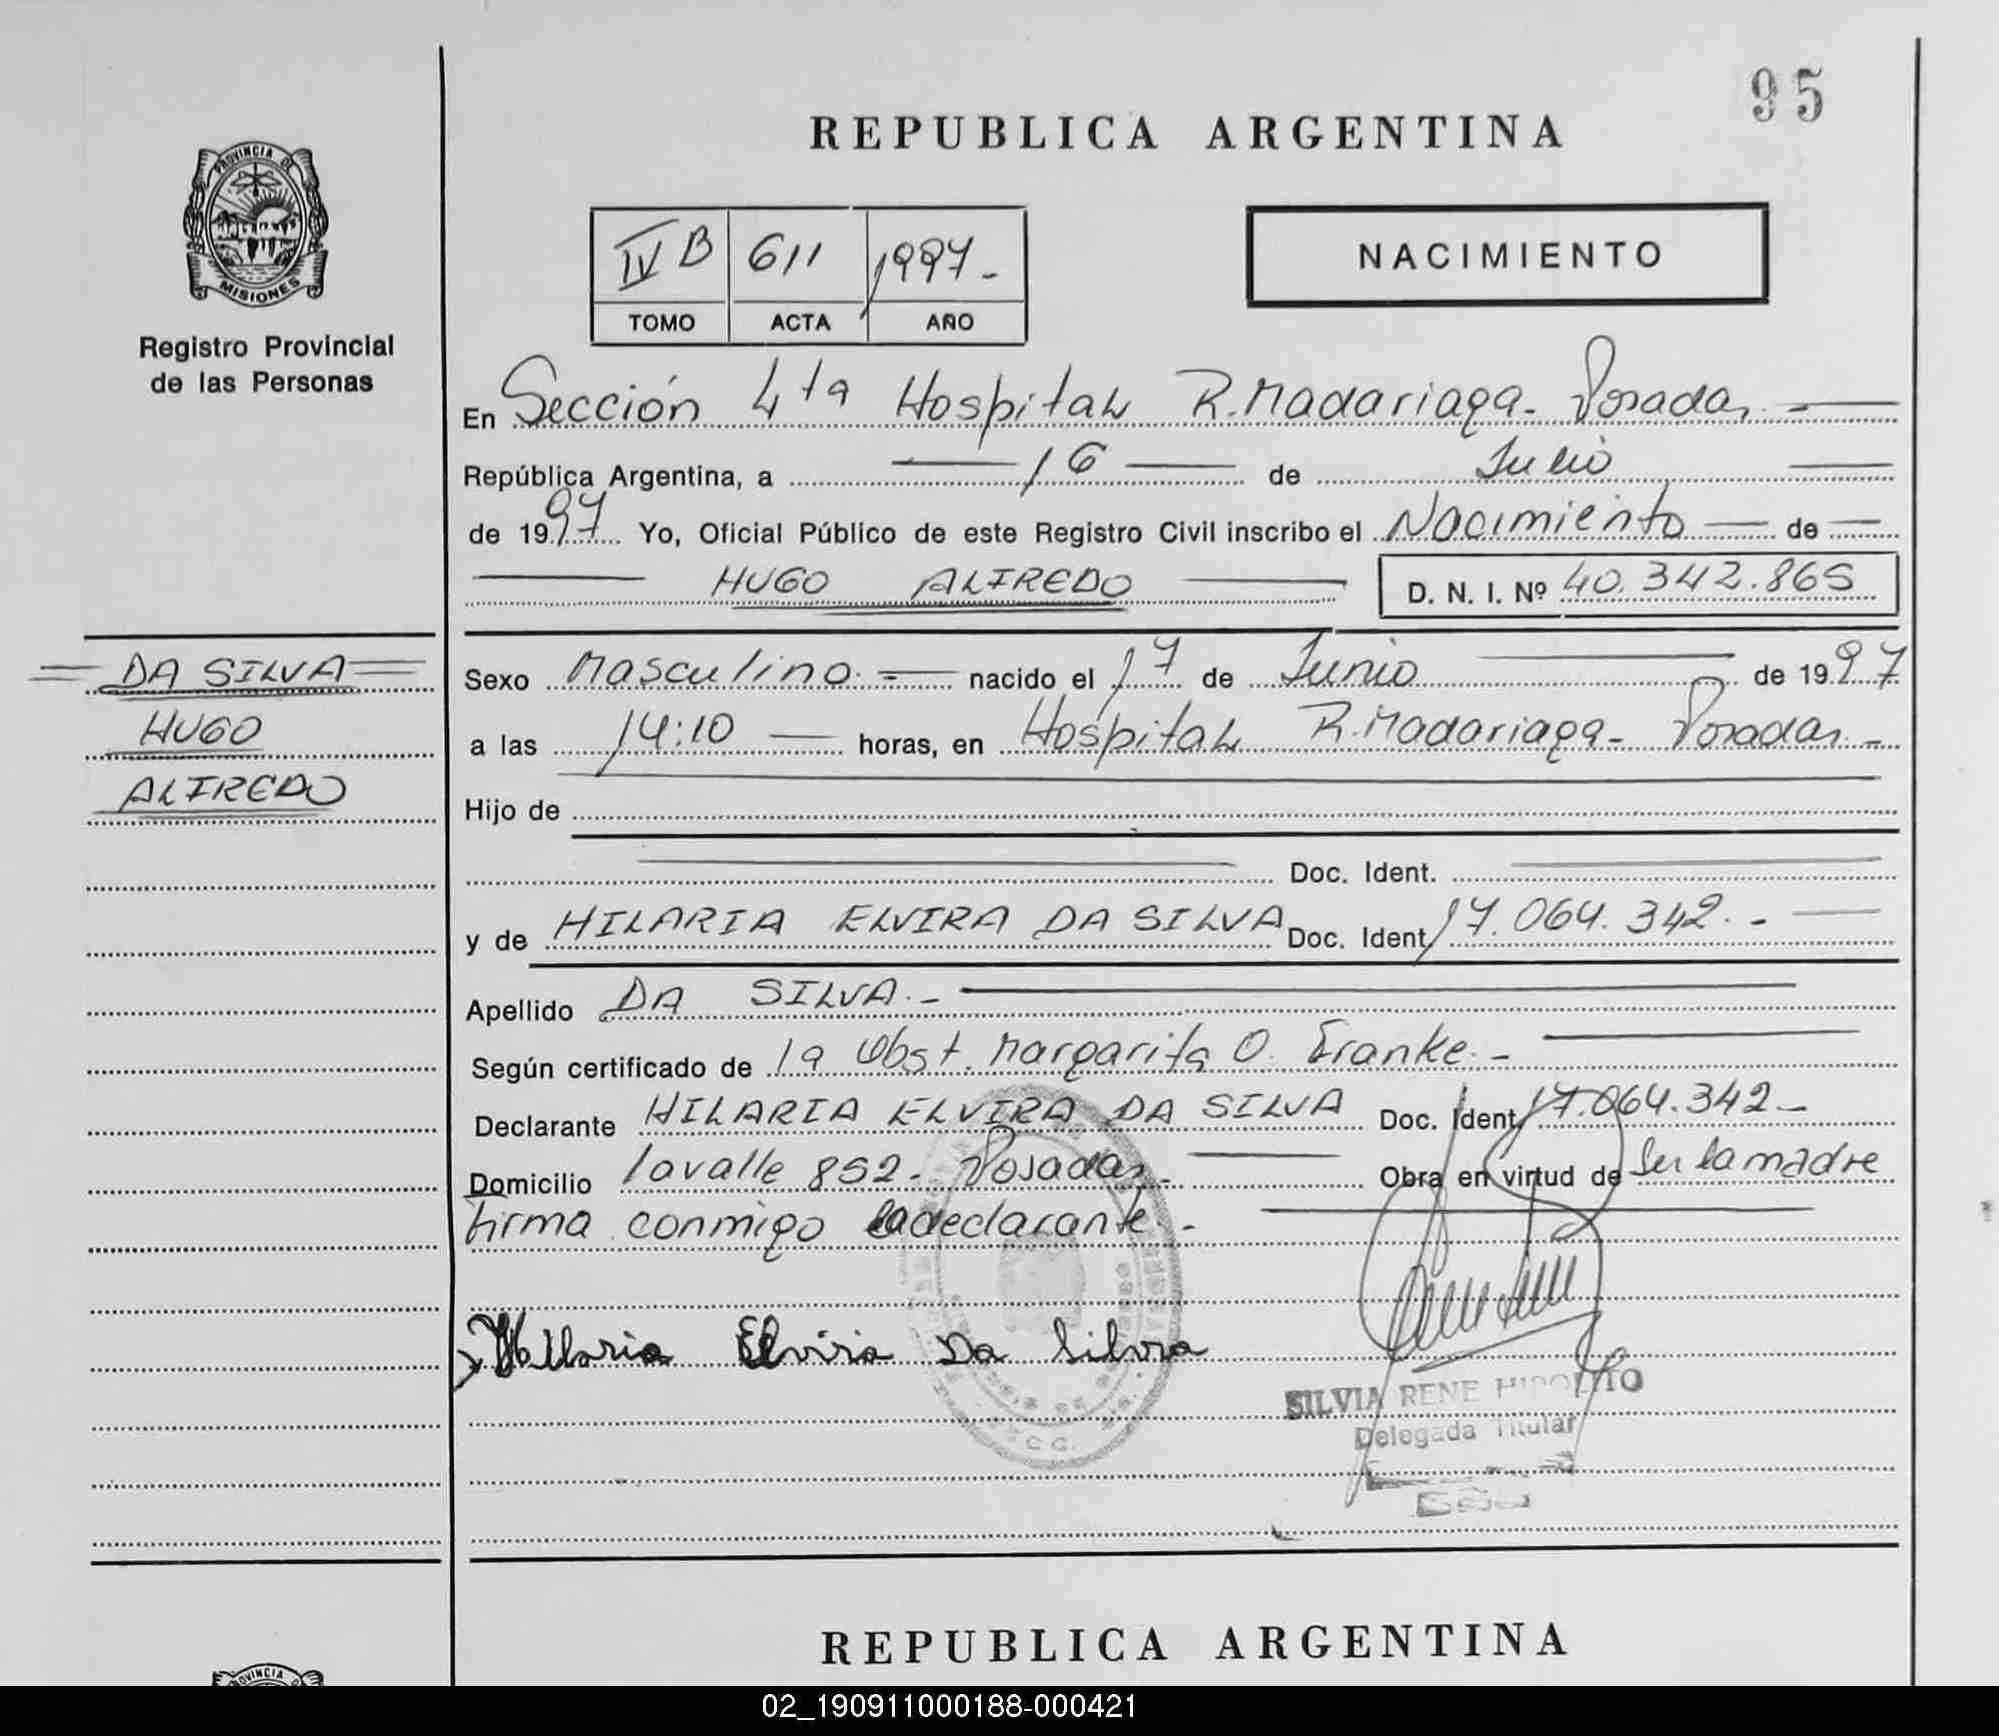 95
REPUBLICA ARGENTINA
PROVINCIA DE
MISIONES
Registro Provincial
de las Personas
IV B 611 1997.-
TOMO ACTA AÑO
NACIMIENTO
En Sección 4ta Hospital R. Madariaga - Posadas. -
República Argentina, a 16 de Julio
de 1997 Yo, Oficial Público de este Registro Civil inscribo el Nacimiento de
HUGO ALFREDO D. N. I. Nº 40.342.865
DA SILVA
HUGO
ALFREDO
Sexo Masculino. - nacido el 17 de Junio de 1997
a las 14:10 horas, en Hospital R. Madariaga - Posadas. -
Hijo de
Doc. Ident.
y de HILARIA ELVIRA DA SILVA Doc. Ident. 17.064.342. -
Apellido DA SILVA. -
Según certificado de la Obst. Margarita O. Franke. -
Declarante HILARIA ELVIRA DA SILVA Doc. Ident. 17.064.342 -
Domicilio Lavalle 852 - Posadas. - Obra en virtud de Ser la madre
firma conmigo la declarante. -
Hillaria Elviria Da Silvia
SILVIA RENE HIPOLITO
Delegada Titular
REPUBLICA ARGENTINA
PROVINCIA
02_190911000188-000421